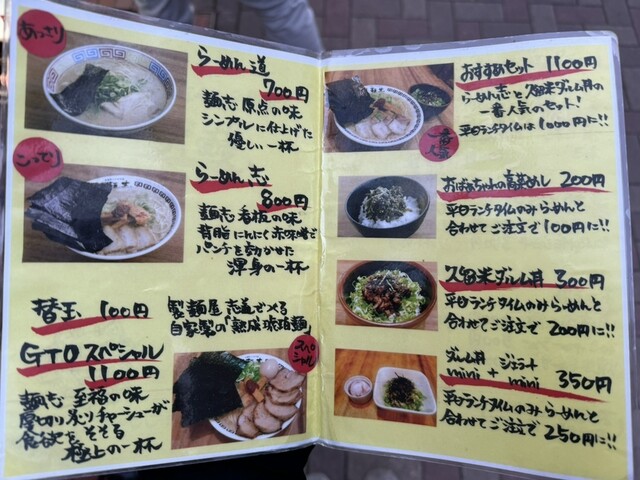 あっさり
らーめん道
700円
麺志 原点の味
シンプルに仕上げた
優しい一杯
こってり
らーめん志
800円
麺志 看板の味
背脂にんにく赤味噌で
パンチを効かせた
渾身の一杯
替玉 100円
製麺屋 志道で作る
自家製の「熟成琥珀麺」
GTOスペシャル
1100円
麺志 至福の味
厚切り炙りチャーシューが
食欲をそそる
極上の一杯
スペシャル
おすすめセット 1100円
らーめん志と久留米ダルム丼の
一番人気のセット!
平日ランチタイムは1000円に!!
一番人気
おばあちゃんの高菜めし 200円
平日ランチタイムのみらーめんと
合わせてご注文で100円に!!
久留米ダルム丼 300円
平日ランチタイムのみらーめんと
合わせてご注文で 200円に!!
ダルム丼 ジェラート
mini + mini 350円
平日ランチタイムのみらーめんと
合わせてご注文で 250円に!!